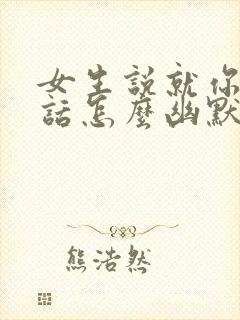 女生説就你
話怎麼幽默
熊浩然